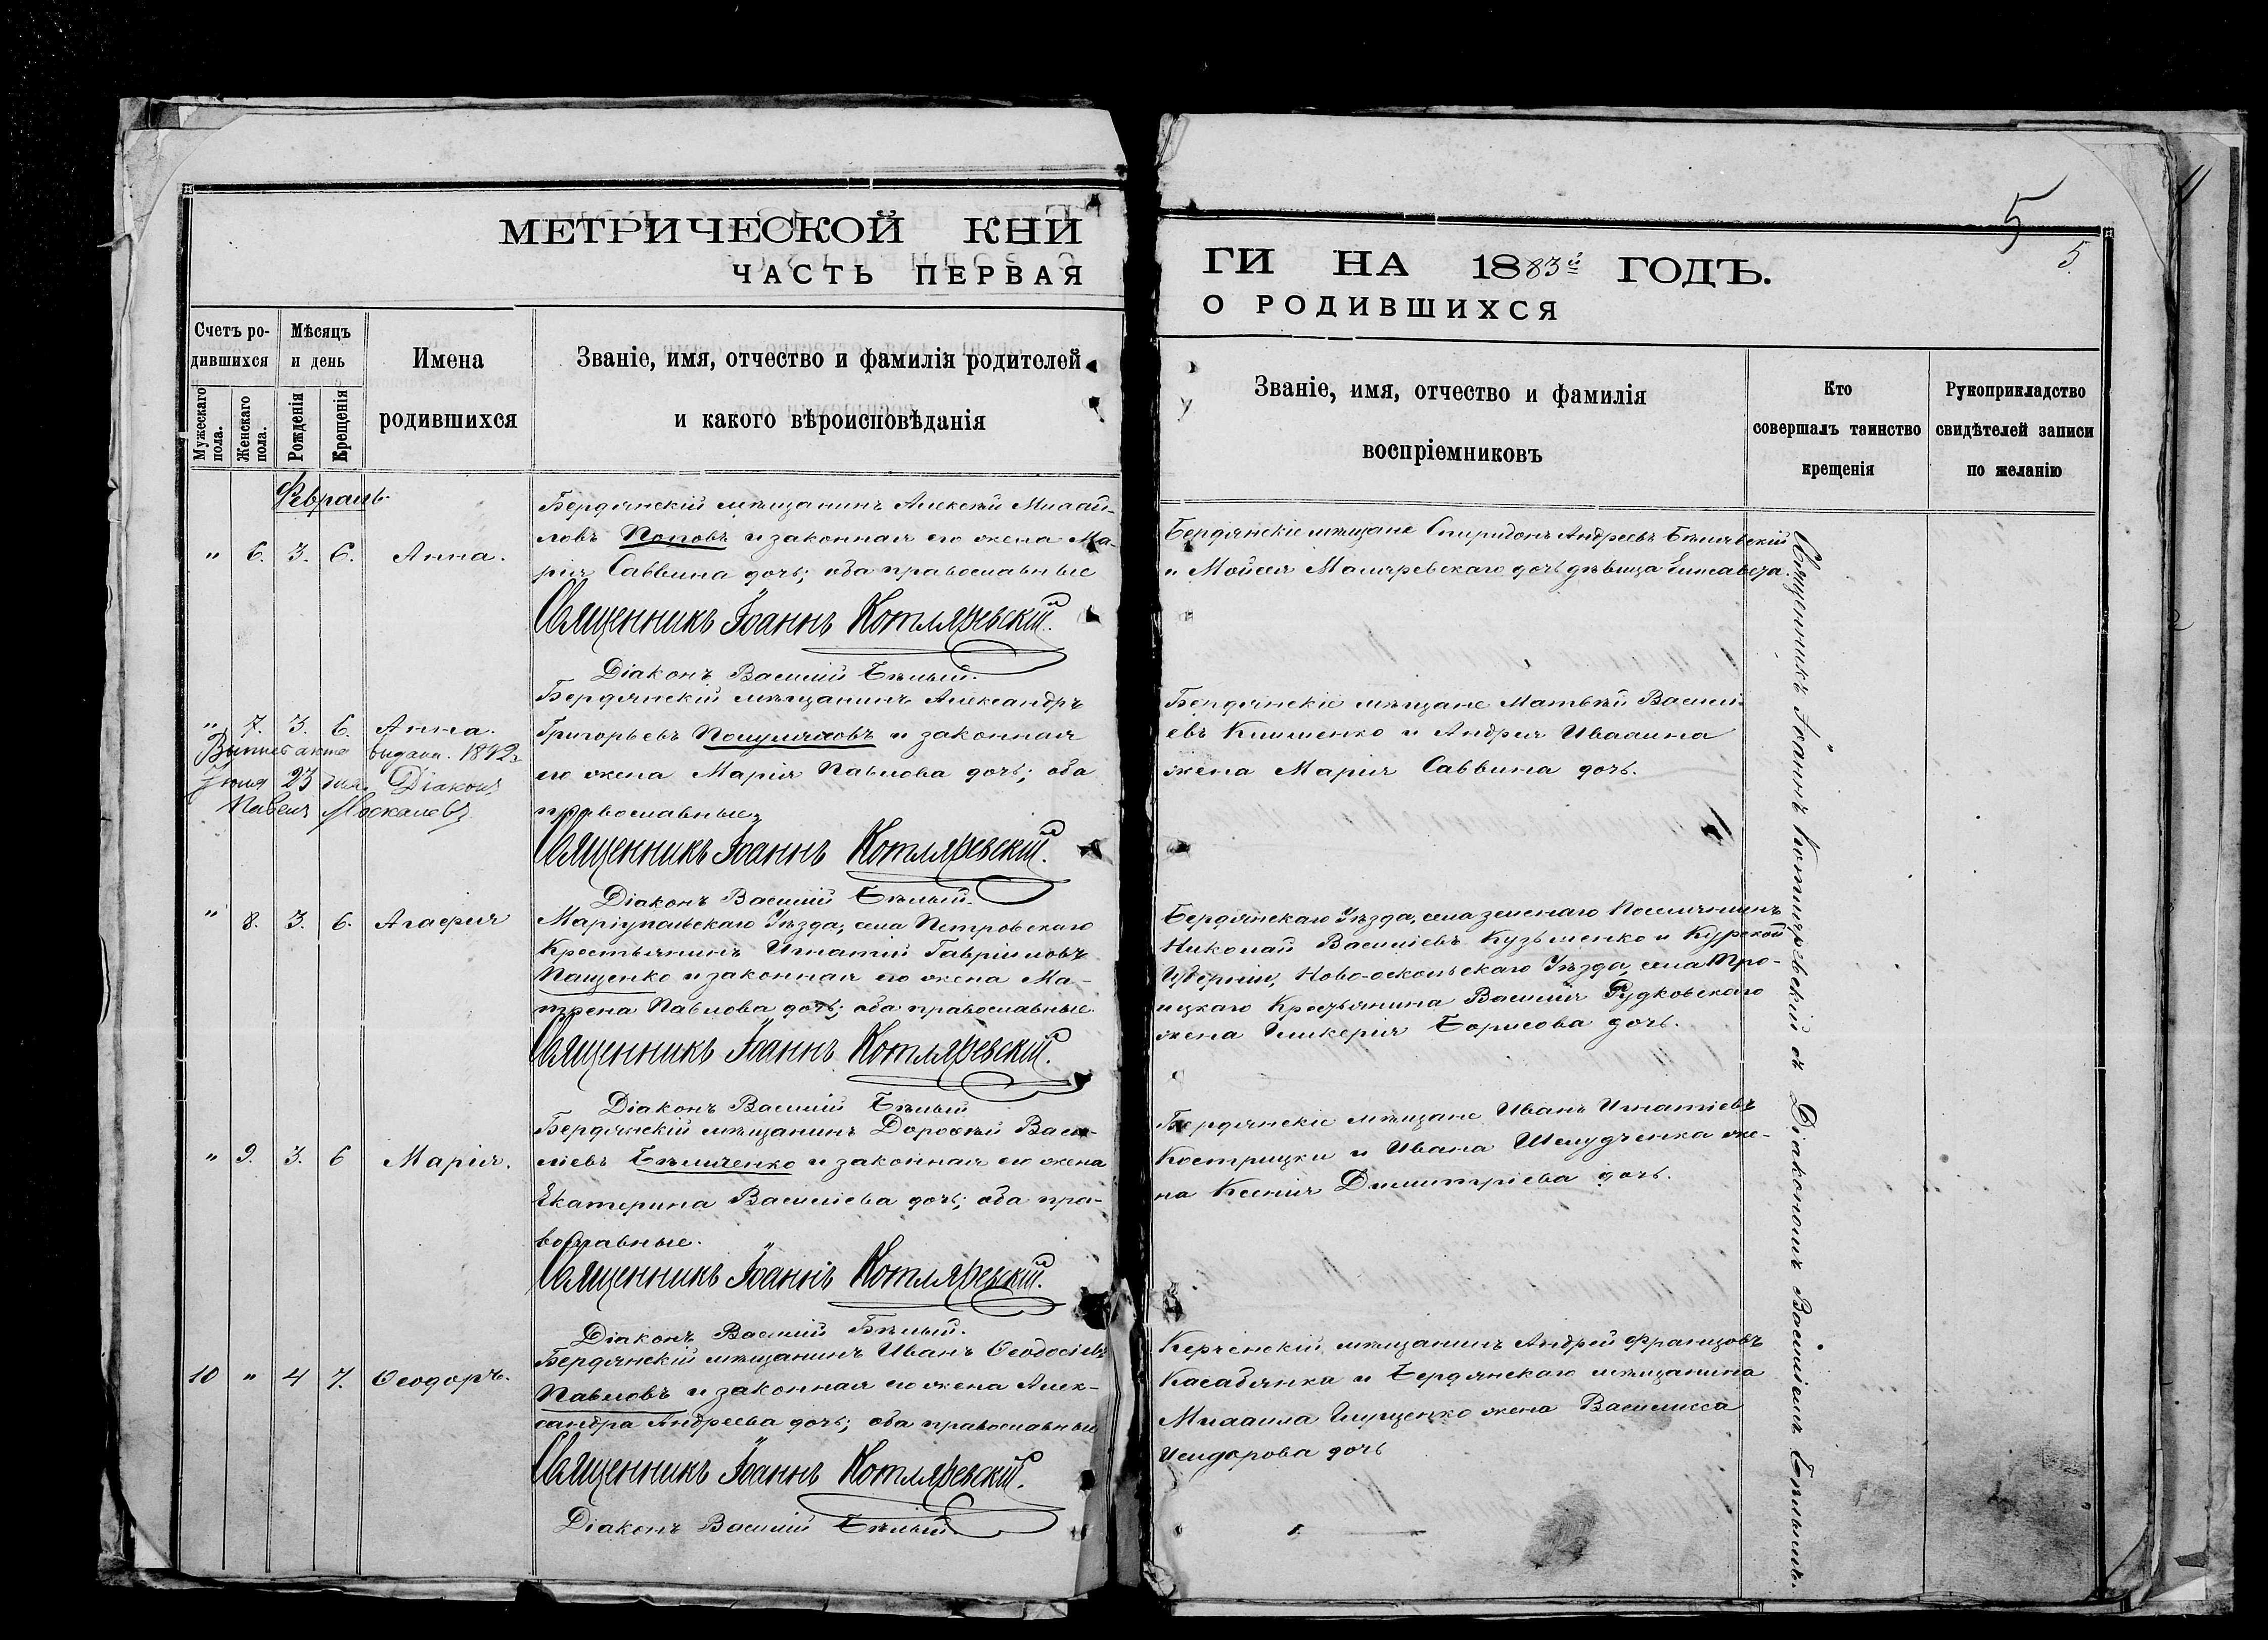 МЕТРИЧЕСКОЙ КНИ
ЧАСТЬ ПЕРВАЯ
Счетъ ро-
дившихся
Мѣсяцъ
и день
Имена
родившихся
Званіе, имя, отчество и фамилія родителей
и какого вѣроисповѣданія
Мужескаго
пола.
Женскаго
пола.
Рожденія
Крещенія
Февраль.
" 6. 3. 6. Анна.
Бердянскій мѣщанинъ Алексѣй Михай-
ловъ Поповъ и законная его жена Ма-
рія Саввина дочь; оба православные
Священникъ Іоаннъ Котляревскій.
Діаконъ Василій Бѣлый.
" 7. 3. 6. Анна.
Выпись акта выдан. 1892
Іюля 23 дня. Діаконъ
Павелъ Москалевъ
Бердянскій мѣщанинъ Александръ
Григорьевъ Полуляховъ и законная
его жена Марія Павлова дочь; оба
православные.
Священникъ Іоаннъ Котляревскій.
Діаконъ Василій Бѣлый.
" 8. 3. 6. Агафія
Маріупольскаго Уѣзда, села Петровскаго
Крестьянинъ Игнатій Гавріиловъ
Пащенко и законная его жена Ма-
трена Павлова дочь; оба православные.
Священникъ Іоаннъ Котляревскій.
Діаконъ Василій Бѣлый
" 9. 3. 6 Марія.
Бердянскій мѣщанинъ Дороѳей Васи-
ліевъ Бѣличенко и законная его жена
Екатерина Василіева дочь; оба пра-
вославные.
Священникъ Іоаннъ Котляревскій.
Діаконъ Василій Бѣлый.
10 " 4 7. Ѳеодоръ.
Бердянскій мѣщанинъ Иванъ Ѳеодосіевъ
Павловъ и законная его жена Алек-
сандра Андреева дочь; оба православные
Священникъ Іоаннъ Котляревскій.
Діаконъ Василій Бѣлый.
5
5.
ГИ НА 1883й ГОДЪ.
О РОДИВШИХСЯ
Званіе, имя, отчество и фамилія
воспріемниковъ
Кто
совершалъ таинство
крещенія
Рукоприкладство
свидѣтелей записи
по желанію
Бердянскіе мѣщане Спиридонъ Андреевъ Бѣлявскій
и Мойсея Маляревскаго дочь дѣвица Елисавета.
Бердянскіе мѣщане Матвѣй Василі-
евъ Клименко и Андрея Ивахина
жена Марія Саввина дочь.
Бердянскаго Уѣзда, села зеленаго Поселянинъ
Николай Василіевъ Кузьменко и Курской
Губерніи, Ново-оскольскаго Уѣзда, села Тро-
ицкаго Крестьянина Василія Рудковскаго
жена Гликерія Борисова дочь.
Бердянскіе мѣщане Иванъ Игнатіевъ
Кострицки и Ивана Шелудченка же-
на Ксенія Димитріева дочь.
Керченскій мѣщанинъ Андрей Францовъ
Касабянка и Бердянскаго мѣщанина
Михаила Глущенко жена Василисса
Исидорова дочь
Священникъ Іоаннъ Котляревскій съ Діакономъ Василіемъ Бѣлымъ.